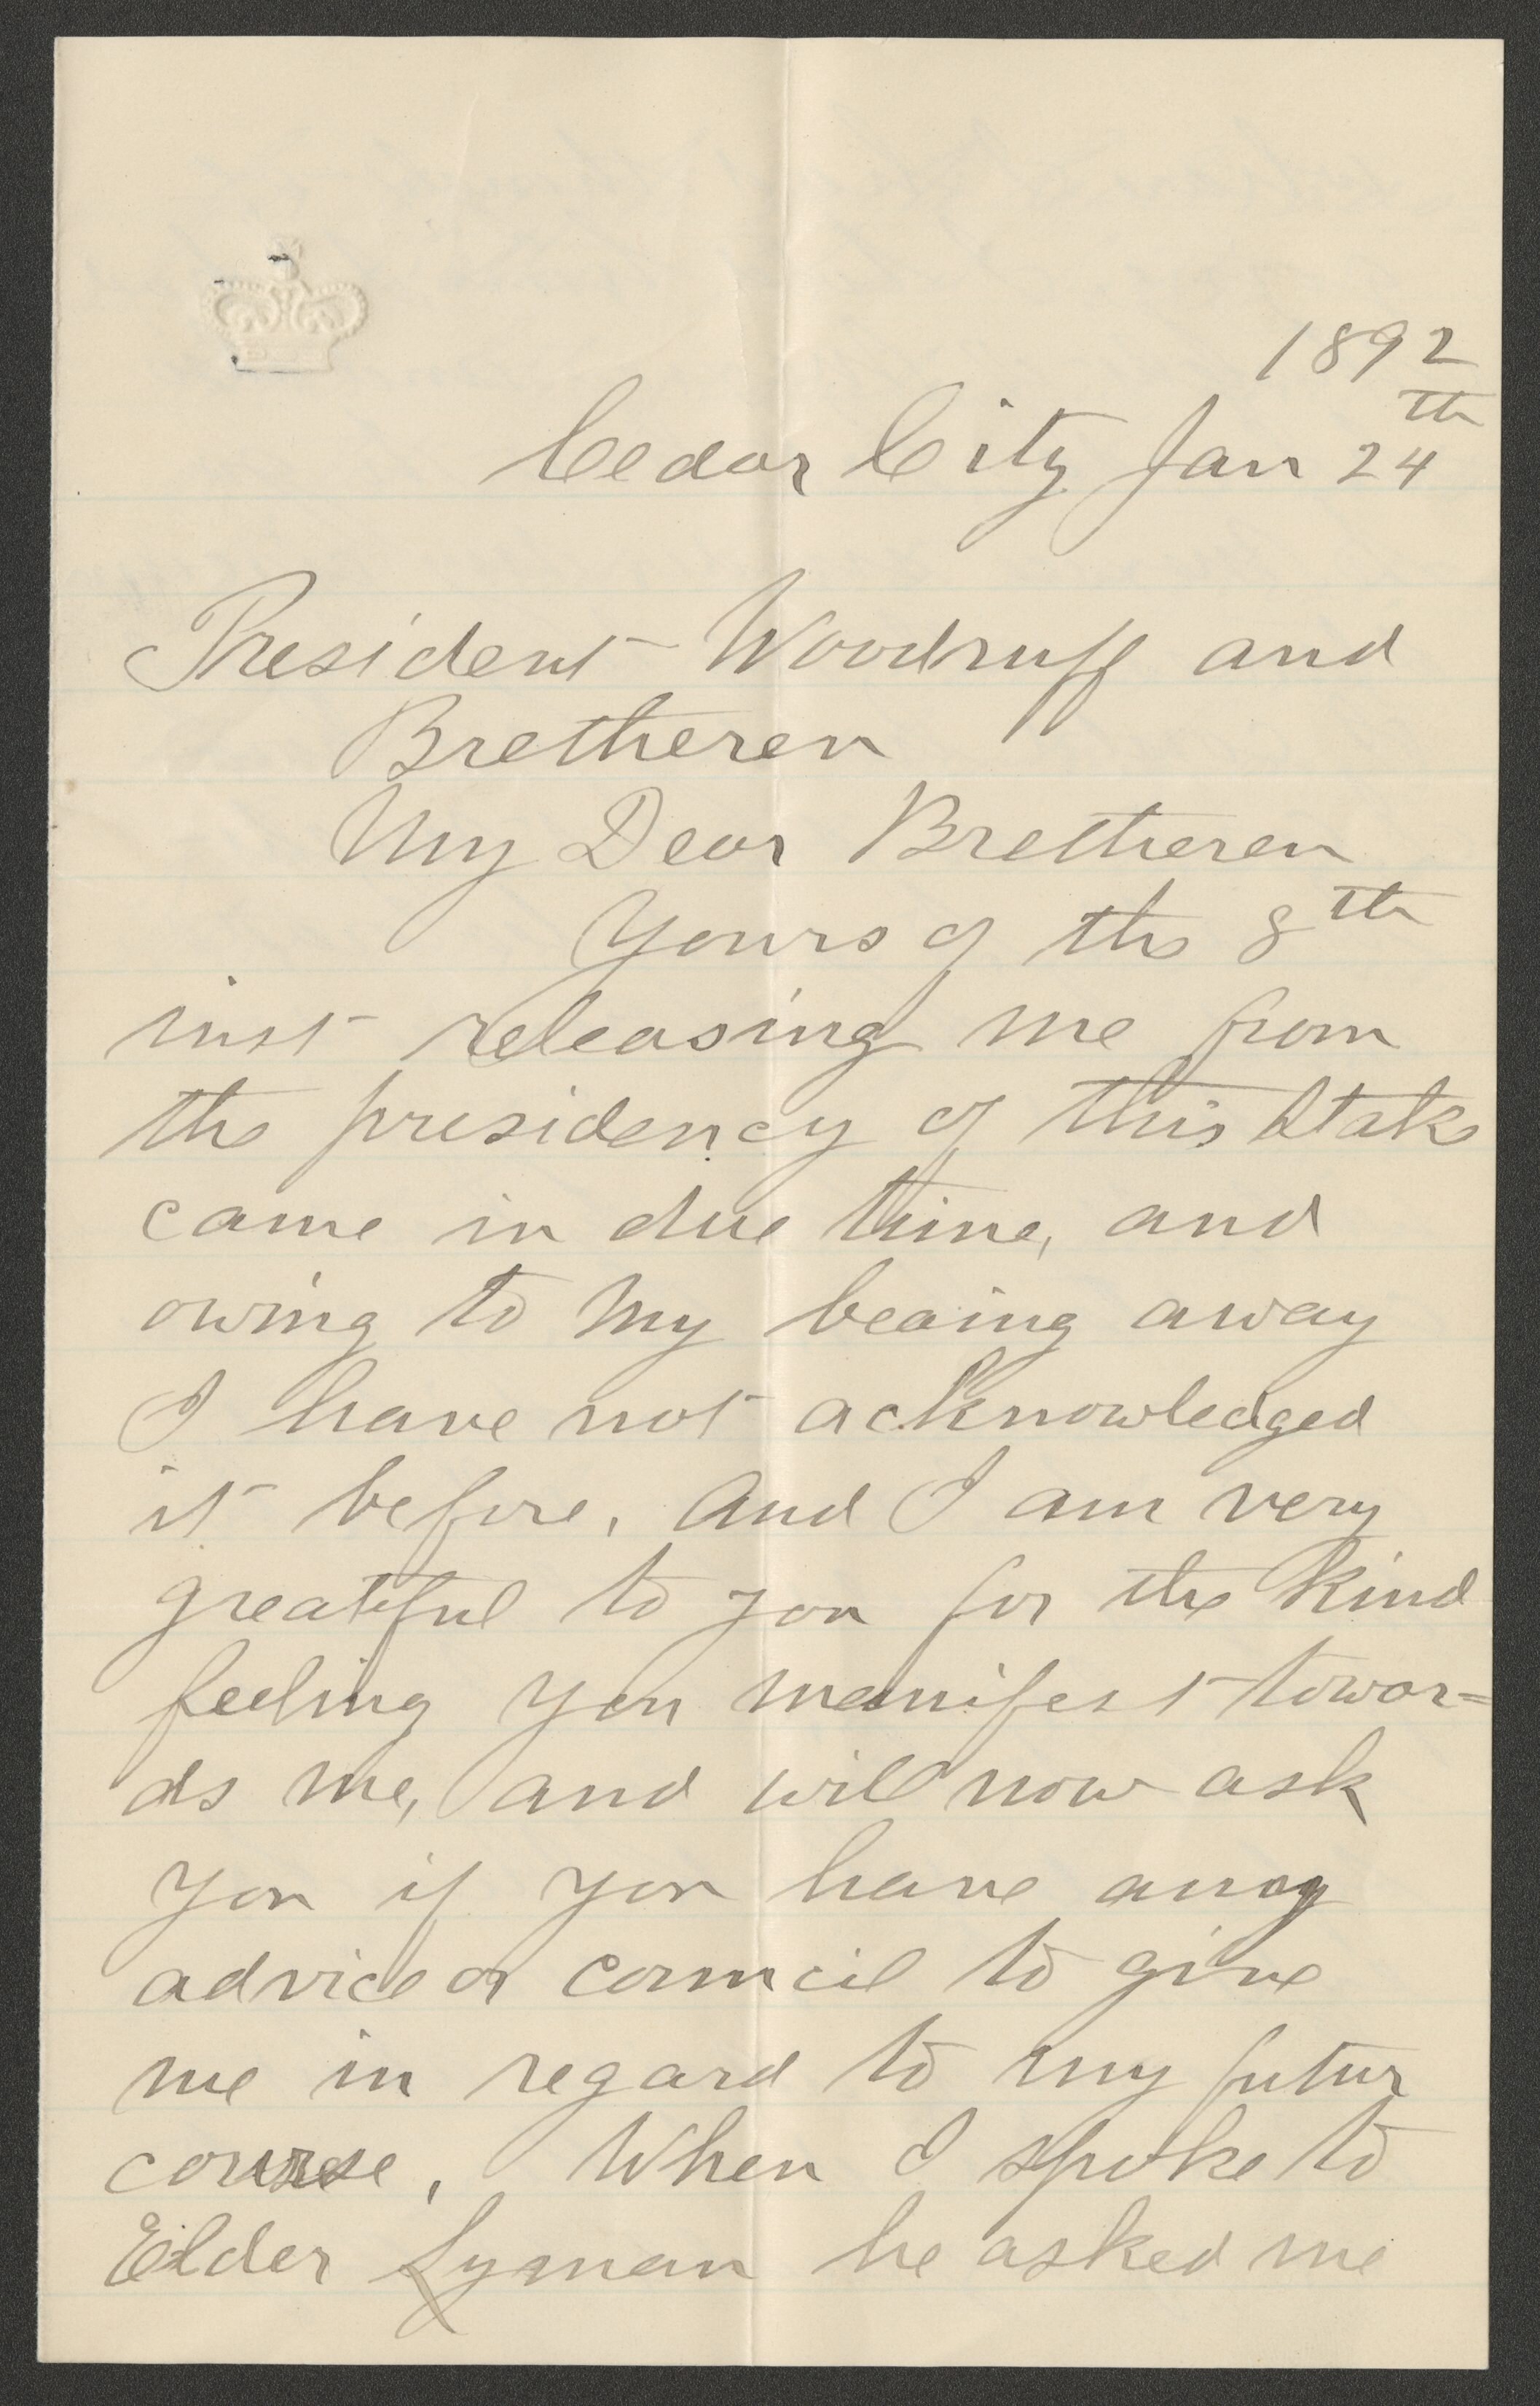 1892
Cedar City Jan 24th
President Woodruff and
Bretheren
My Dear Bretheren
Yours of the 8th
inst releasing me from
the presidency of this Stake
came in due time, and
owing to my beaing away
I have not acknowledged
it before. And I am very
greatful to you for the kind
feeling you manifest towar=
ds me, and will now ask
you if you have any
advice or council to give
me in regard to my futur
course. When I spoke to
Elder Lyman he asked me